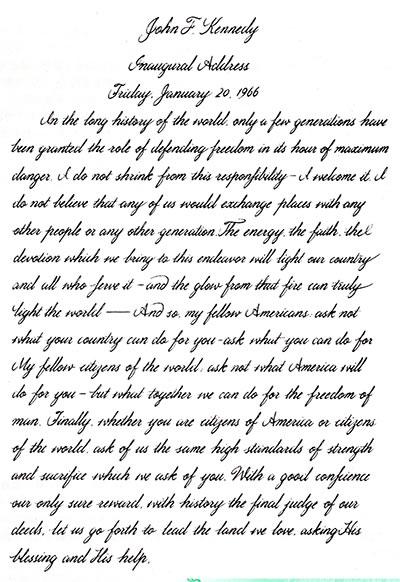 John F. Kennedy
Inaugural Address
Friday, January 20, 1966
In the long history of the world, only a few generations have
been granted the role of defending freedom in its hour of maximum
danger. I do not shrink from this responsibility – I welcome it. I
do not believe that any of us would exchange places with any
other people or any other generation. The energy, the faith, the
devotion which we bring to this endeavor will light our country
and all who serve it – and the glow from that fire can truly
light the world — And so, my fellow Americans: ask not
what your country can do for you – ask what you can do for
My fellow citizens of the world: ask not what America will
do for you – but what together we can do for the freedom of
man. Finally, whether you are citizens of America or citizens
of the world, ask of us the same high standards of strength
and sacrifice which we ask of you. With a good confience
our only sure reward, with history the final judge of our
deeds, let us go forth to lead the land we love, asking His
blessing and His help.